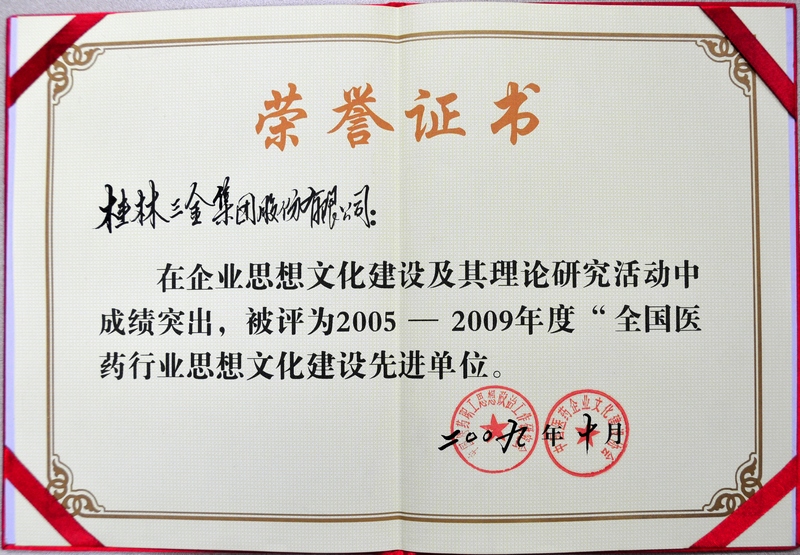 荣誉证书
桂林三金集团股份有限公司：
在企业思想文化建设及其理论研究活动中
成绩突出，被评为2005 — 2009年度“全国医
药行业思想文化建设先进单位。
二00九年十月
中国医药企业文化建设协会